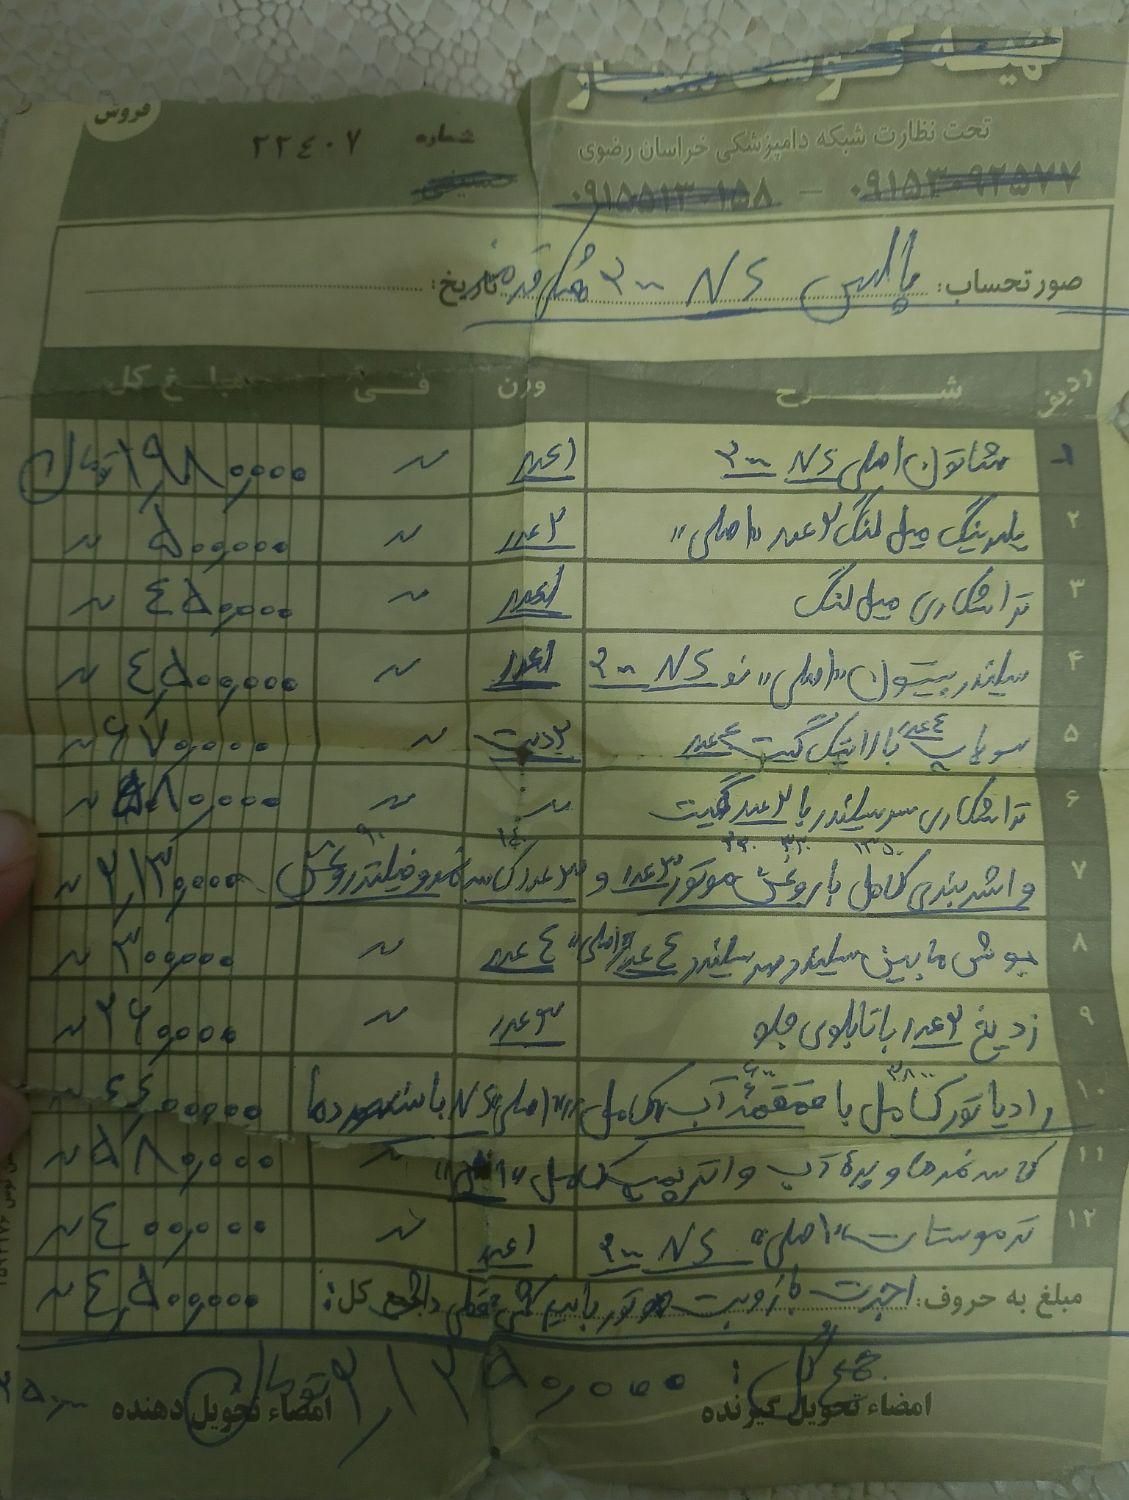 تهیه گوشت
فروش
تحت نظارت شبکه دامپزشکی خراسان رضوی
شماره ۲۲۴۰۷
۰۹۱۵۳۰۹۲۵۷۷ – ۰۹۱۵۵۱۳۰۱۵۸
صورتحساب: پالس NS ۲۰۰ تاریخ:
ردیف شرح وزن فی مبلغ کل
۱ شاتون اصلی NS ۲۰۰ ۱عدد ۱,۹۸۰,۰۰۰ تومان
۲ بلبرینگ میل لنگ ۲عدد "اصلی" ۲عدد ۵۰۰,۰۰۰
۳ تراشکاری میل لنگ ۱عدد ۴۵۰,۰۰۰
۴ سیلندر پیستون "اصلی" نو NS ۲۰۰ ۱عدد ۴,۵۰۰,۰۰۰
۵ سوپاپ ۴عدد با لاستیک گیت ۴عدد ۲دست ۶۷۰,۰۰۰
۶ تراشکاری سرسیلندر با ۲عدد گیت ۵۸۰,۰۰۰
۷ واشربندی کامل با روغن موتور ۳عدد و ۳عدد کاسه نمد و فیلتر روغن ۲,۱۳۰,۰۰۰
۸ بوش مابین سیلندر سرسیلندر ۴عدد "اصلی" ۴عدد ۳۰۰,۰۰۰
۹ زدیخ ۲عدد با تابلوی جلو ۲۶۰,۰۰۰
۱۰ رادیاتور کامل با قمقمه آب کامل "اصلی" NS با
۱۱ کاسه نمدها و پره آب و واترپمپ کامل ۵۸۰,۰۰۰
۱۲ ترموستات "اصلی" NS ۲۰۰ ۱عدد ۴۰۰,۰۰۰
مبلغ به حروف: اجرت باز و بست موتور با سیم کشی جمع کل: ۴,۵۰۰,۰۰۰
جمع کل: تومان
امضاء تحویل گیرنده امضاء تحویل دهنده